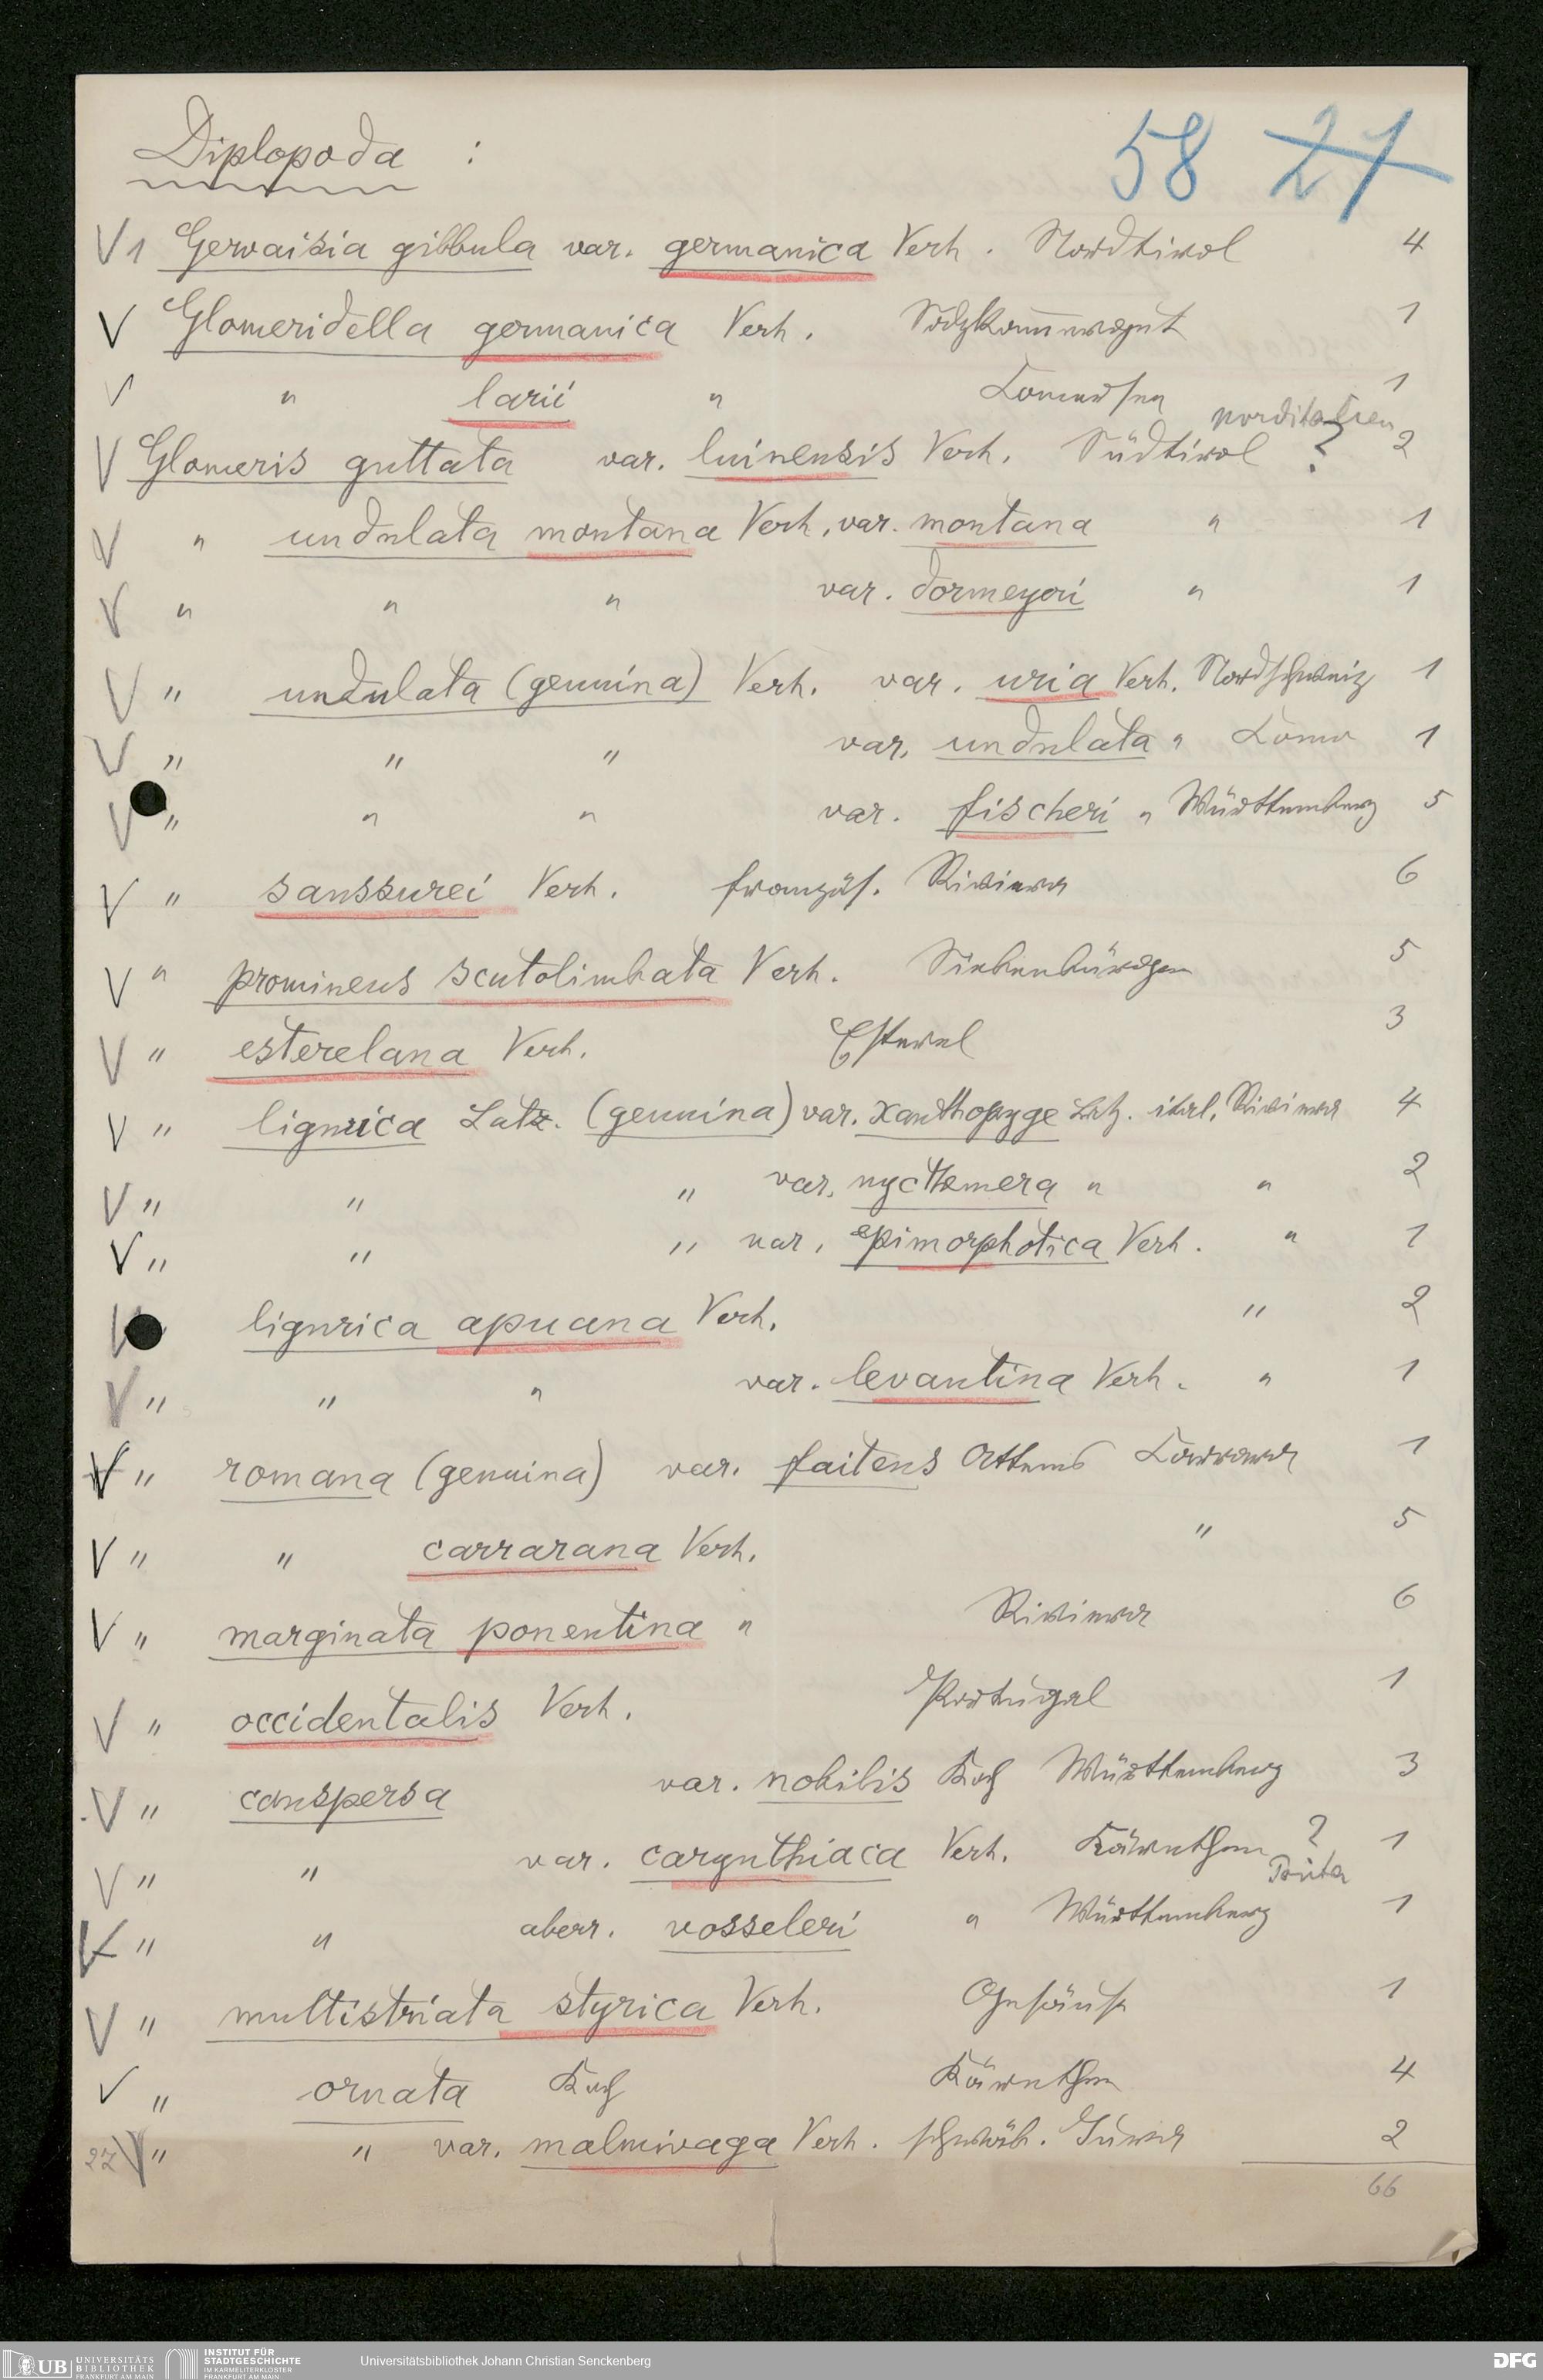 Diplopoda :
58 27
V 1 Gervaisia gibbula var. germanica Verh. Nordtirol 4
V Glomeridella germanica Verh. Salzkammergut 1
V " larii " Comersee 1
norditalien
V Glomeris guttata var. luinensis Verh. Südtirol ? 2
V " undulata montana Verh. var. montana " 1
V " " " var. dormeyeri " 1
V " undulata (genuina) Verh. var. uria Verh. Nordschweiz 1
V " " " var. undulata " Como 1
V " " " var. fischeri " Württemberg 5
V " saussurei Verh. französ. Riviera 6
V " prominens scutolimbata Verh. Siebenbürgen 5
V " esterelana Verh. Esterel 3
V " ligurica Latz. (genuina) var. xanthopyge Latz. ital. Riviera 4
V " " " var. nycthemera " " 2
V " " " var. epimorphotica Verh. " 1
V ligurica apuana Verh. " 2
V " " " var. levantina Verh. " 1
V " romana (genuina) var. faitens Attems Carrara 1
V " " carrarana Verh. " 5
V " marginata ponentina " Riviera 6
V " occidentalis Verh. Portugal 1
V " conspersa var. nobilis Koch Württemberg 3
V " " var. carynthiaca Verh. Kärnthen ? 1
V " " aberr. vosseleri " Württemberg 1
V " multistriata styrica Verh. Gesäuse 1
V " ornata Koch Kärnthen 4
27 V " " var. malmivaga Verh. schwäb. Jura 2
66
UB UNIVERSITÄTS
BIBLIOTHEK
FRANKFURT AM MAIN
INSTITUT FÜR
STADTGESCHICHTE
IM KARMELITERKLOSTER
FRANKFURT AM MAIN
Universitätsbibliothek Johann Christian Senckenberg
DFG